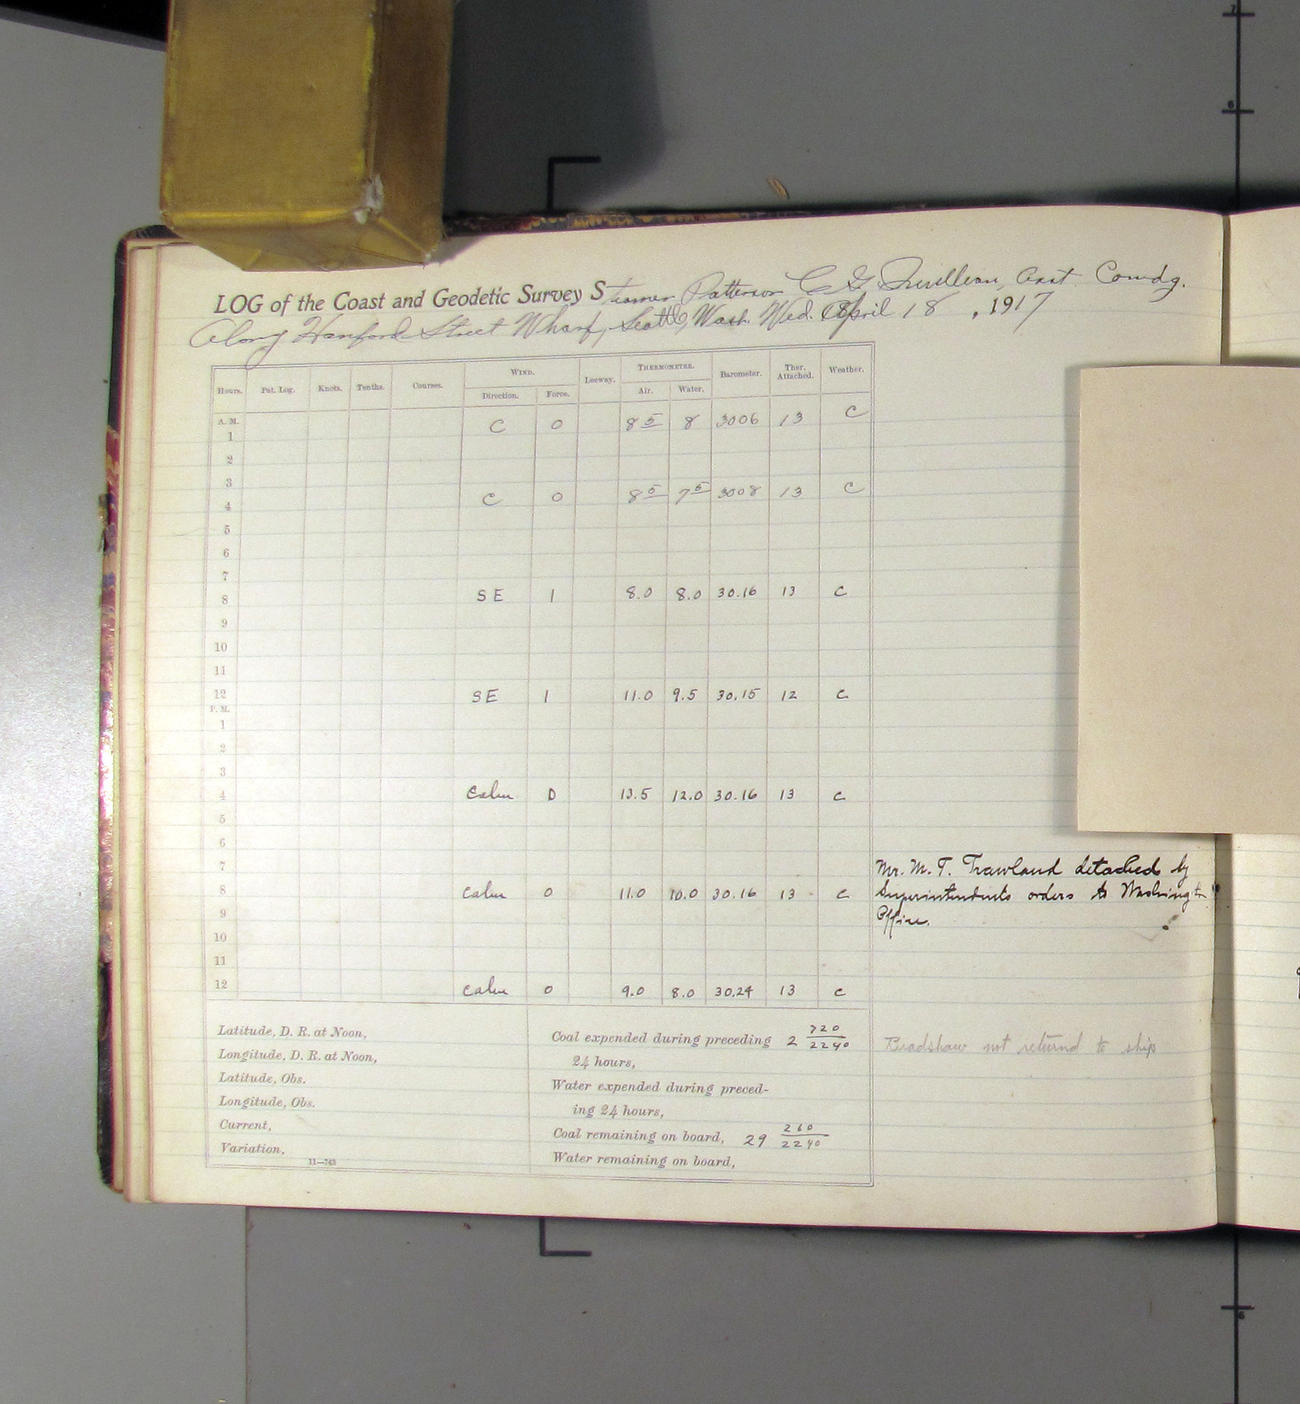 LOG of the Coast and Geodetic Survey Steamer Patterson C G Quillian, Asst Comdg.
Along Hanford Street Wharf, Seattle, Wash. Wed. April 18, 1917
Hours. Pat. Log. Knots. Tenths. Courses. WIND. Leeway. THERMOMETER. Barometer. Ther. Attached. Weather.
Direction. Force. Air. Water.
A. M.
1 C 0 8 5 8 3006 13 C
2
3
4 C 0 8 5 7 5 3008 13 C
5
6
7
8 SE 1 8.0 8.0 30.16 13 C
9
10
11
12 SE 1 11.0 9.5 30.15 12 C
P. M.
1
2
3
4 Calm 0 13.5 12.0 30.16 13 C
5
6
7 Mr. M. T. detached by
8 Calm 0 11.0 10.0 30.16 13 C Superintendents orders to Washington
9 Office.
10
11
12 Calm 0 9.0 8.0 30.24 13 C
Latitude, D. R. at Noon,
Longitude, D. R. at Noon,
Latitude, Obs.
Longitude, Obs.
Current,
Variation,
11—743
Coal expended during preceding 2 720/2240
24 hours,
Water expended during preced-
ing 24 hours,
Coal remaining on board, 29 260/2240
Water remaining on board,
Bradshaw not returnd to ship